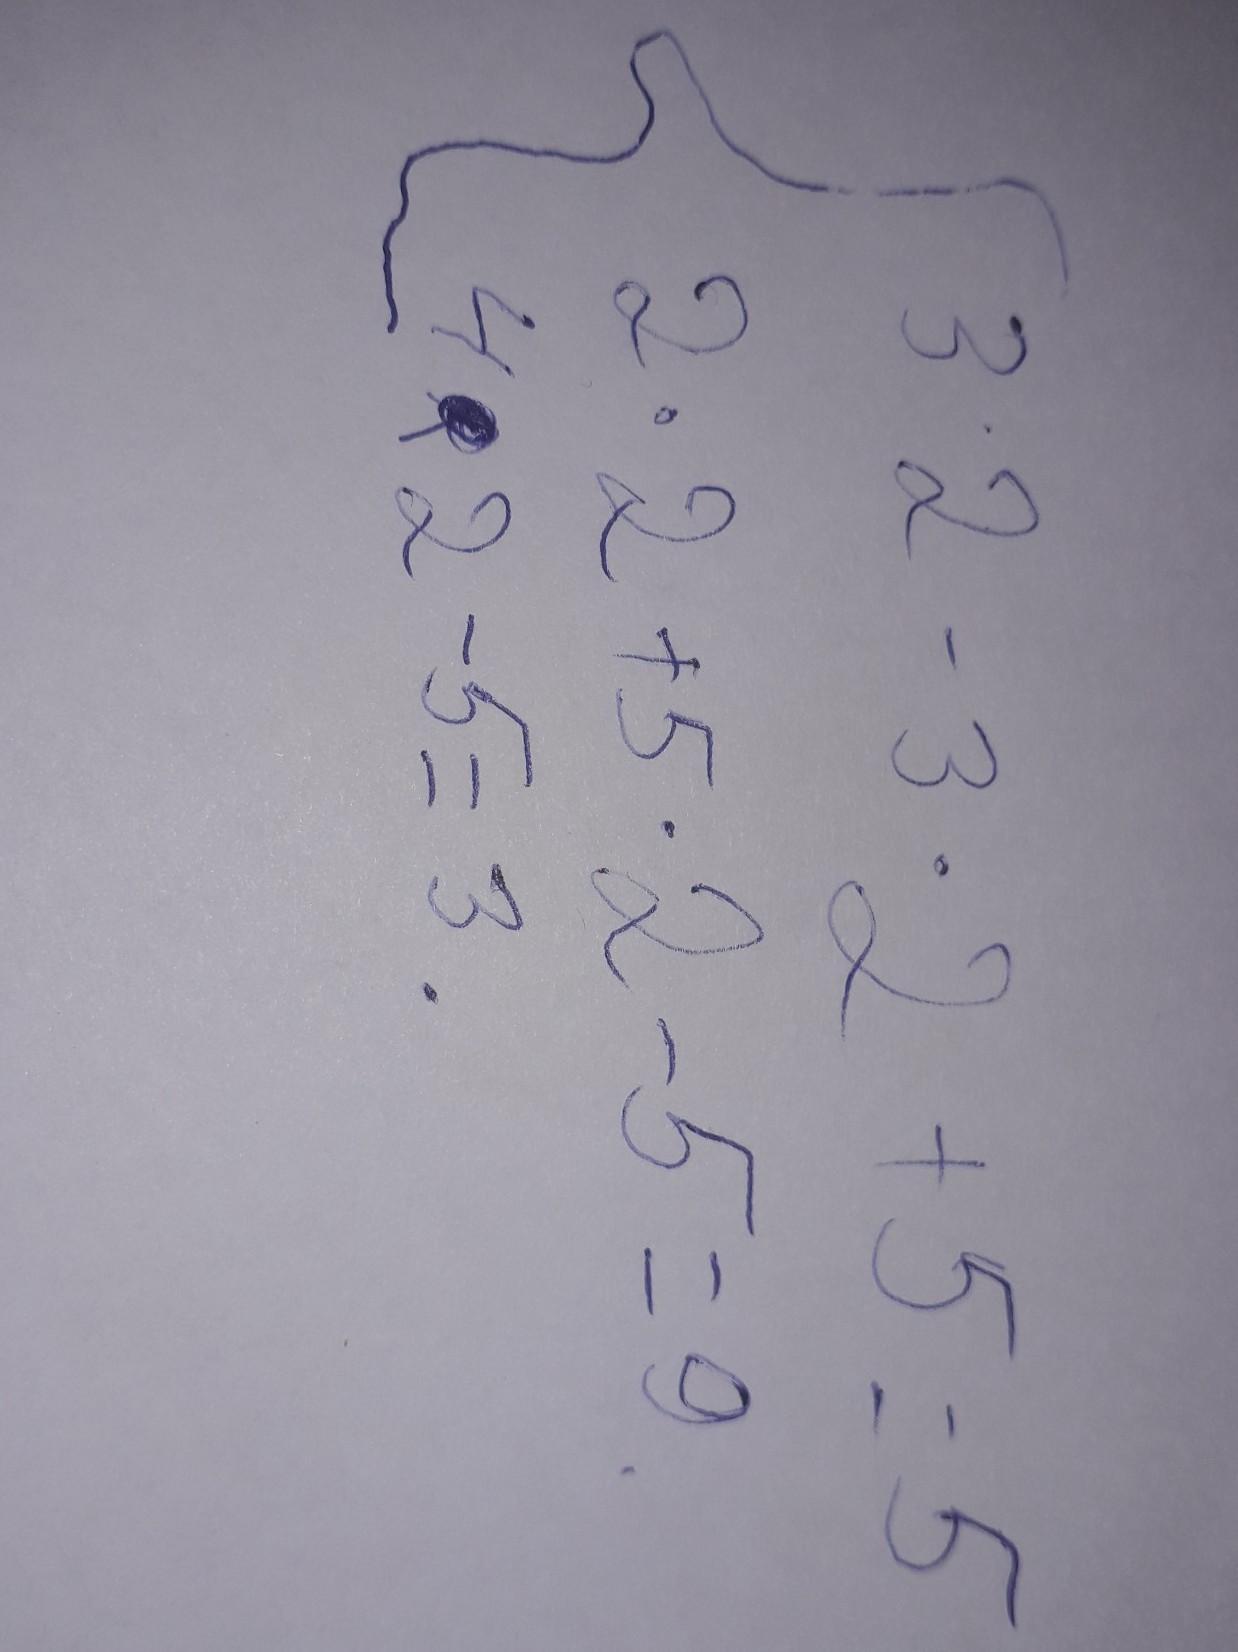 3·2-3·2+5=5
2·2+5·2-5=9.
4·2-5=3.